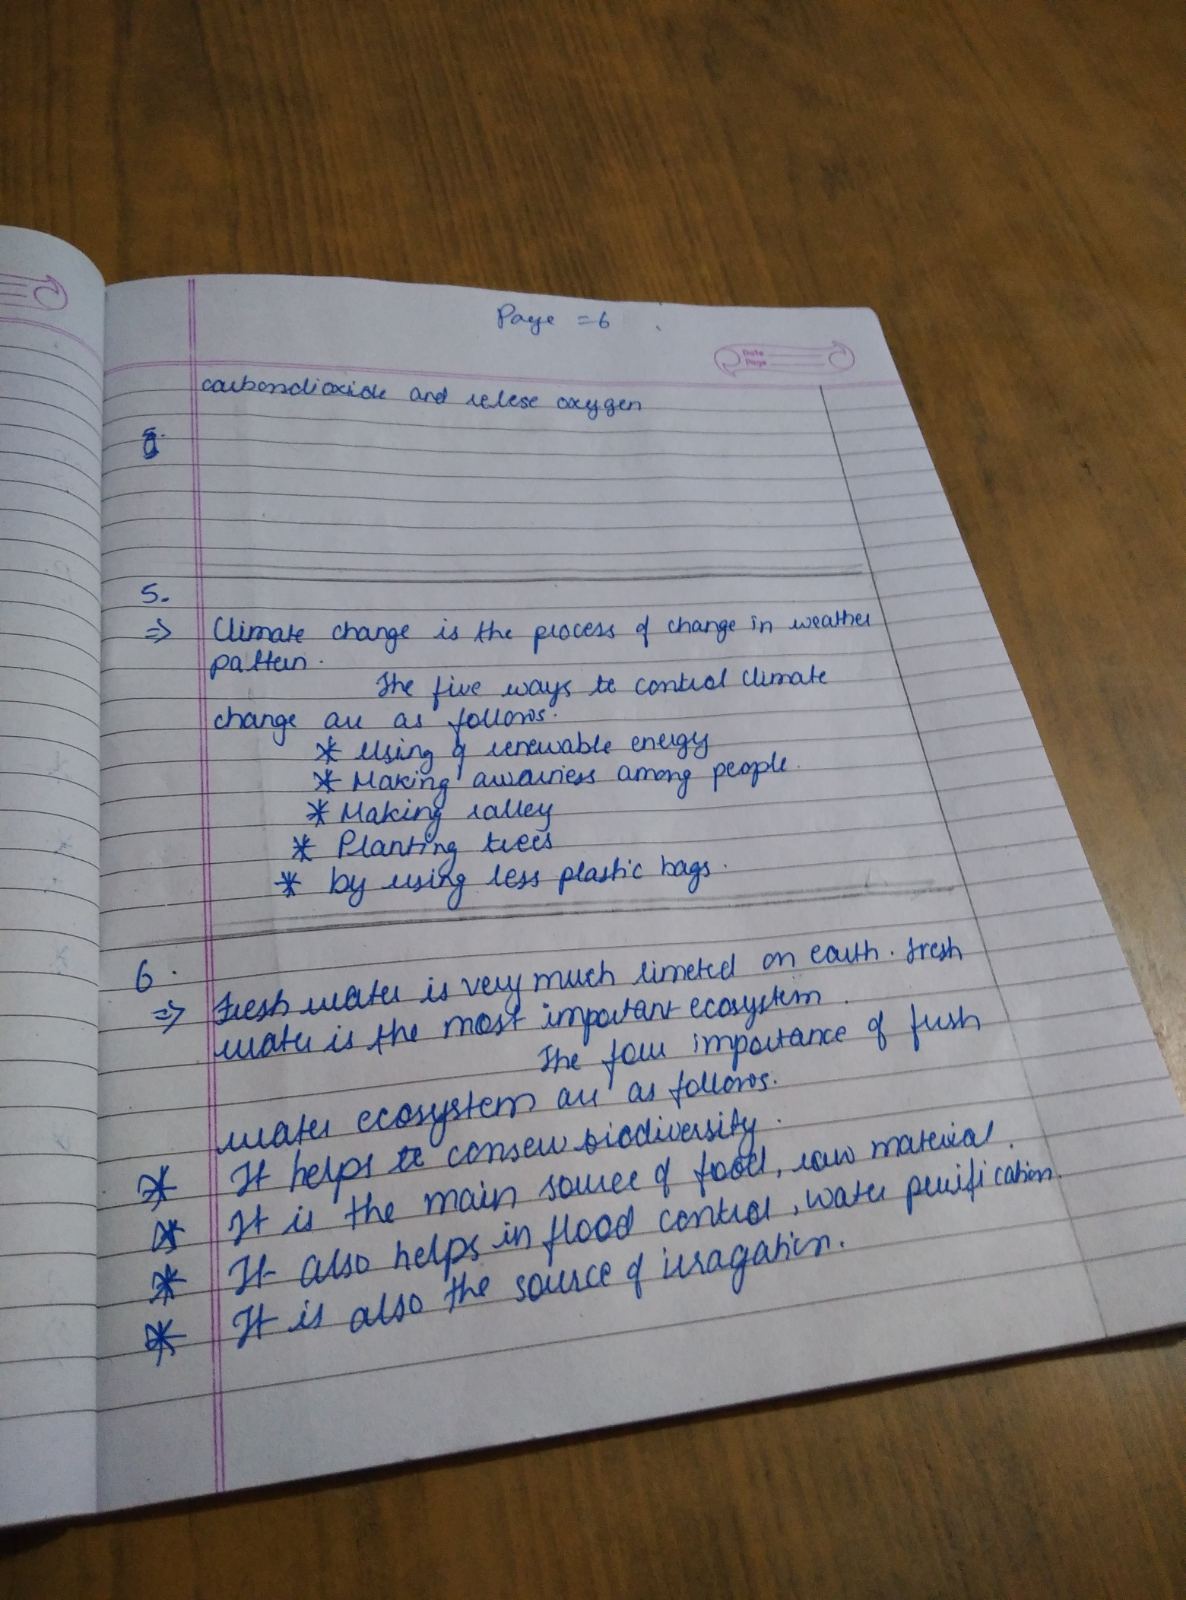 Page = 6
Date
Page
carbondioxide and relese oxygen
5.
⇒ Climate change is the process of change in weather
pattern.
The five ways to control climate
change are as follows.
* Using of renewable energy
* Making awarness among people.
* Making ralley
* Planting trees
* by using less plastic bags.
6.
⇒ Fresh water is very much limeted on earth. Fresh
water is the most important ecosystem.
The four importance of fresh
water ecosystem are as follows.
* It helps to conserve biodiversity.
* It is the main source of food, raw material.
* It also helps in flood control, water purification.
* It is also the source of irragation.